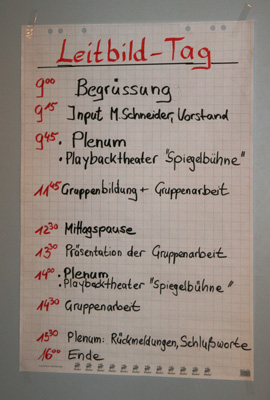 Leitbild-Tag
9⁰⁰ Begrüssung
9¹⁵ Input M. Schneider, Vorstand
9⁴⁵ . Plenum
. Playbacktheater "Spiegelbühne"
11⁴⁵ Gruppenbildung + Gruppenarbeit
12³⁰ Mittagspause
13³⁰ Präsentation der Gruppenarbeit
14⁰⁰ . Plenum
. Playbacktheater "Spiegelbühne"
14³⁰ Gruppenarbeit
15³⁰ Plenum: Rückmeldungen, Schlußworte
16⁰⁰ Ende